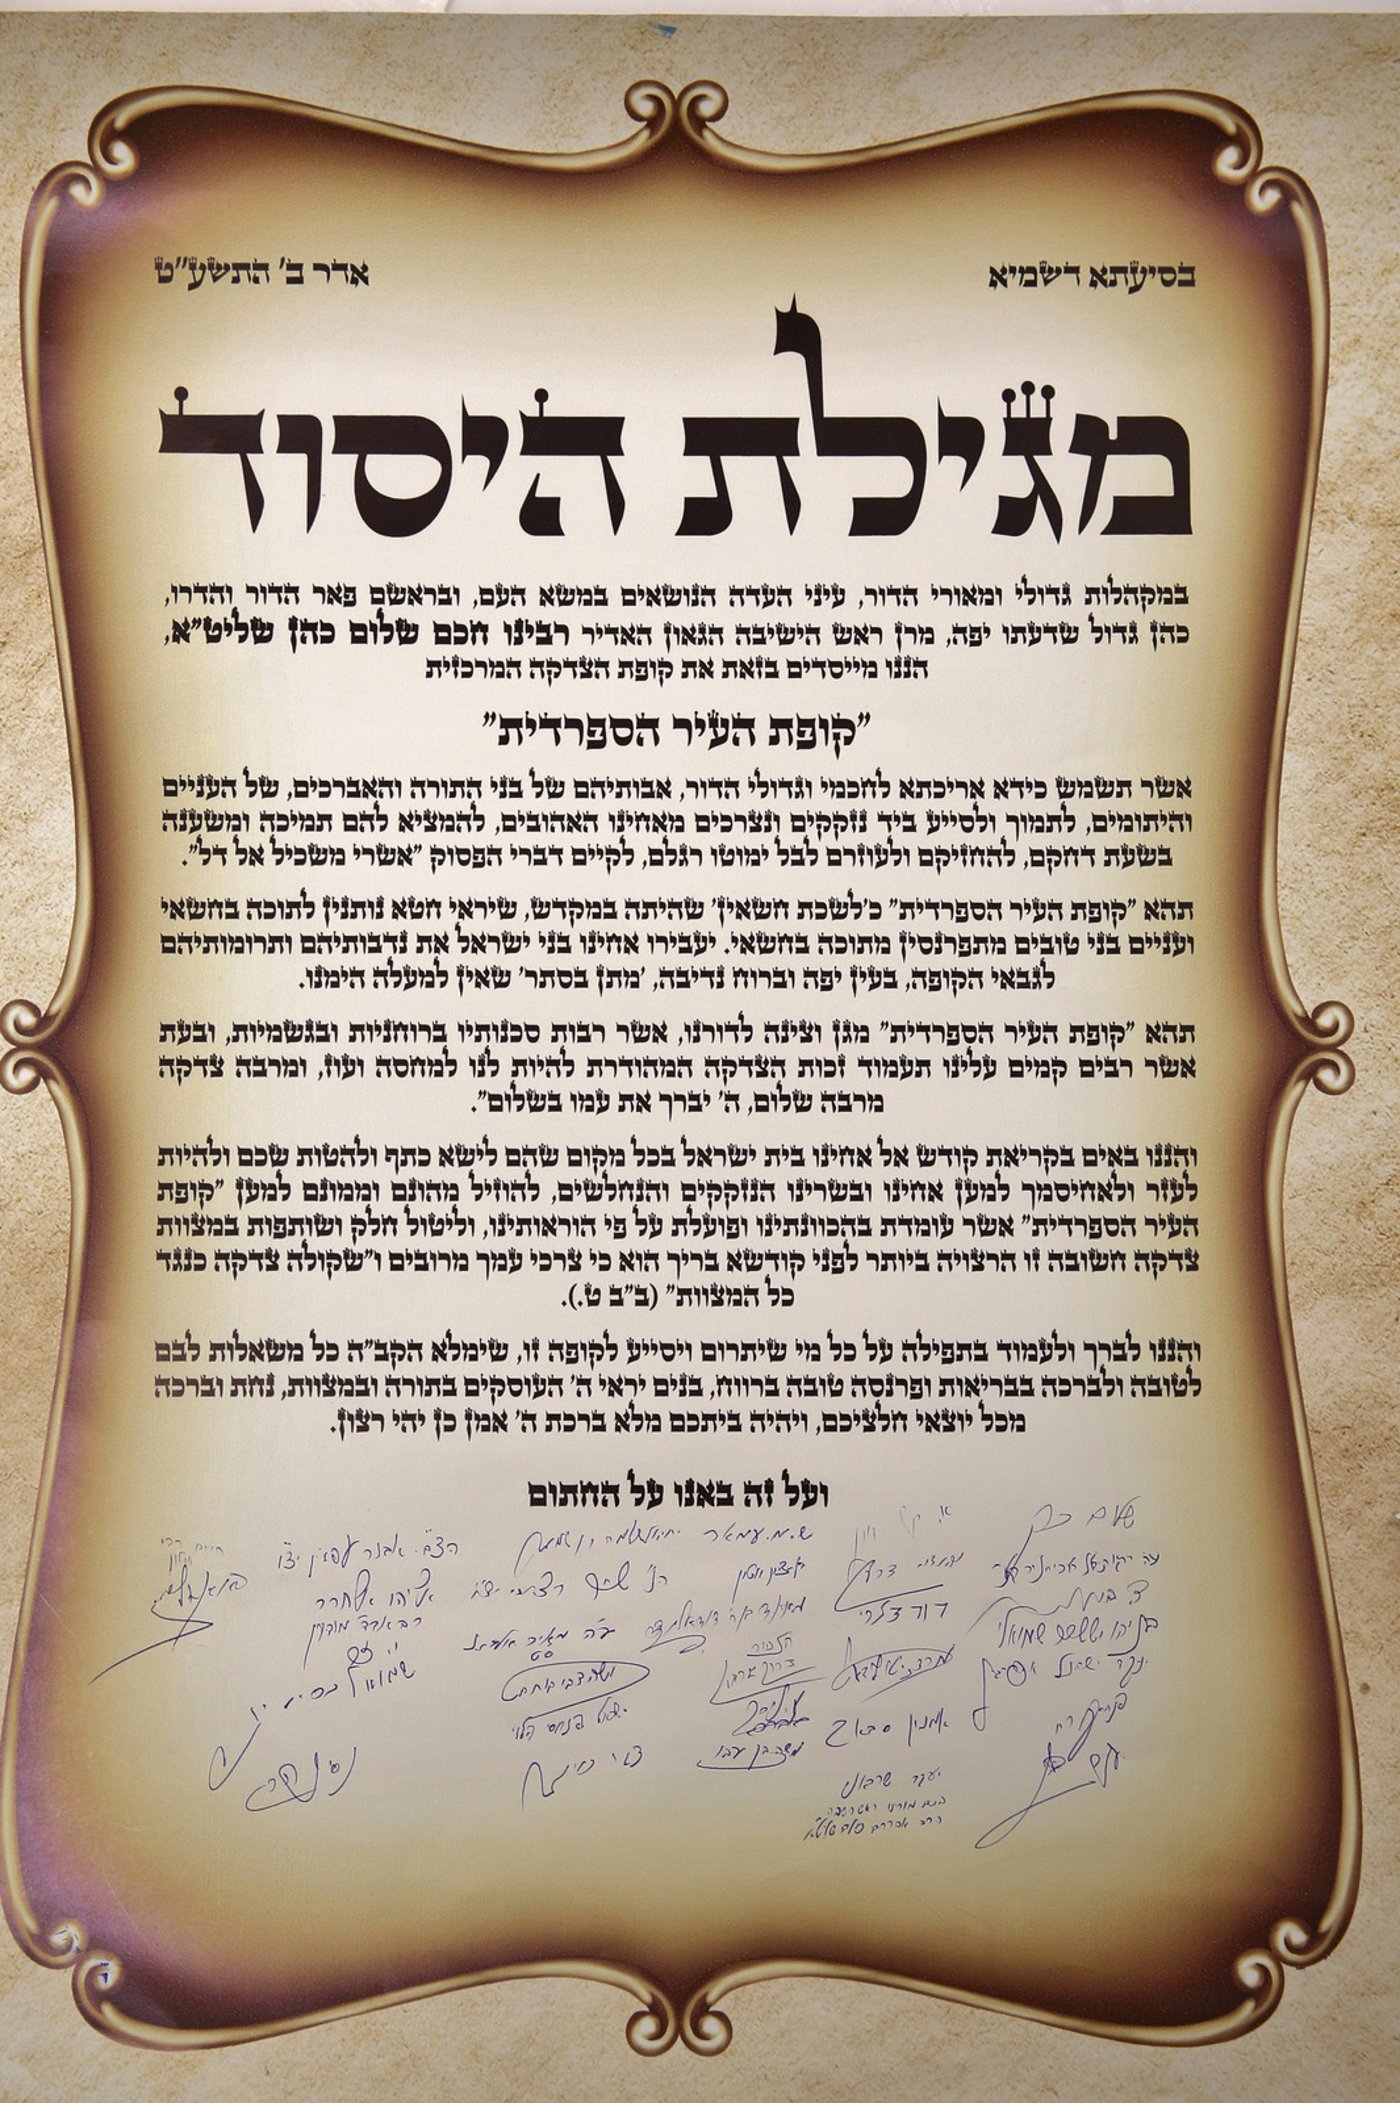 בסיעתא דשמיא
אדר ב' התשע"ט
מגילת היסוד
במקהלות גדולי ומאורי הדור, עיני העדה הנושאים במשא העם, ובראשם פאר הדור והדרו,
כהן גדול שדעתו יפה, מרן ראש הישיבה הגאון האדיר רבינו חכם שלום כהן שליט"א,
הננו מייסדים בזאת את קופת הצדקה המרכזית
"קופת העיר הספרדית"
אשר תשמש כידא אריכתא לחכמי וגדולי הדור, אבותיהם של בני התורה והאברכים, של העניים
והיתומים, לתמוך ולסייע ביד נזקקים ונצרכים מאחינו האהובים, להמציא להם תמיכה ומשענה
בשעת דחקם, להחזיקם ולעוזרם לבל ימוטו רגלם, לקיים דברי הפסוק "אשרי משכיל אל דל".
תהא "קופת העיר הספרדית" כ'לשכת חשאין' שהיתה במקדש, שיראי חטא נותנין לתוכה בחשאי
ועניים בני טובים מתפרנסין מתוכה בחשאי. יעבירו אחינו בני ישראל את נדבותיהם ותרומותיהם
לגבאי הקופה, בעין יפה וברוח נדיבה, 'מתן בסתר' שאין למעלה הימנו.
תהא "קופת העיר הספרדית" מגן וצינה לדורנו, אשר רבות סכנותיו ברוחניות ובגשמיות, ובעת
אשר רבים קמים עלינו תעמוד זכות הצדקה המהודרת להיות לנו למחסה ועוז, ומרבה צדקה
מרבה שלום, ה' יברך את עמו בשלום".
והננו באים בקריאת קודש אל אחינו בית ישראל בכל מקום שהם לישא כתף ולהטות שכם ולהיות
לעזר ולאחיסמך למען אחינו ובשרינו הנזקקים והנחלשים, להוזיל מהונם וממונם למען "קופת
העיר הספרדית" אשר עומדת בהכוונתינו ופועלת על פי הוראותינו, וליטול חלק ושותפות במצוות
צדקה חשובה זו הרצויה ביותר לפני קודשא בריך הוא כי צרכי עמך מרובים ו"שקולה צדקה כנגד
כל המצוות" (ב"ב ט.).
והננו לברך ולעמוד בתפילה על כל מי שיתרום ויסייע לקופה זו, שימלא הקב"ה כל משאלות לבם
לטובה ולברכה בבריאות ופרנסה טובה ברווח, בנים יראי ה' העוסקים בתורה ובמצוות, נחת וברכה
מכל יוצאי חלציכם, ויהיה ביתכם מלא ברכת ה' אמן כן יהי רצון.
ועל זה באנו על החתום
שלום כהן
ש.מ. עמאר
דוד
אליהו
בניהו שמואלי
משה
יעקב